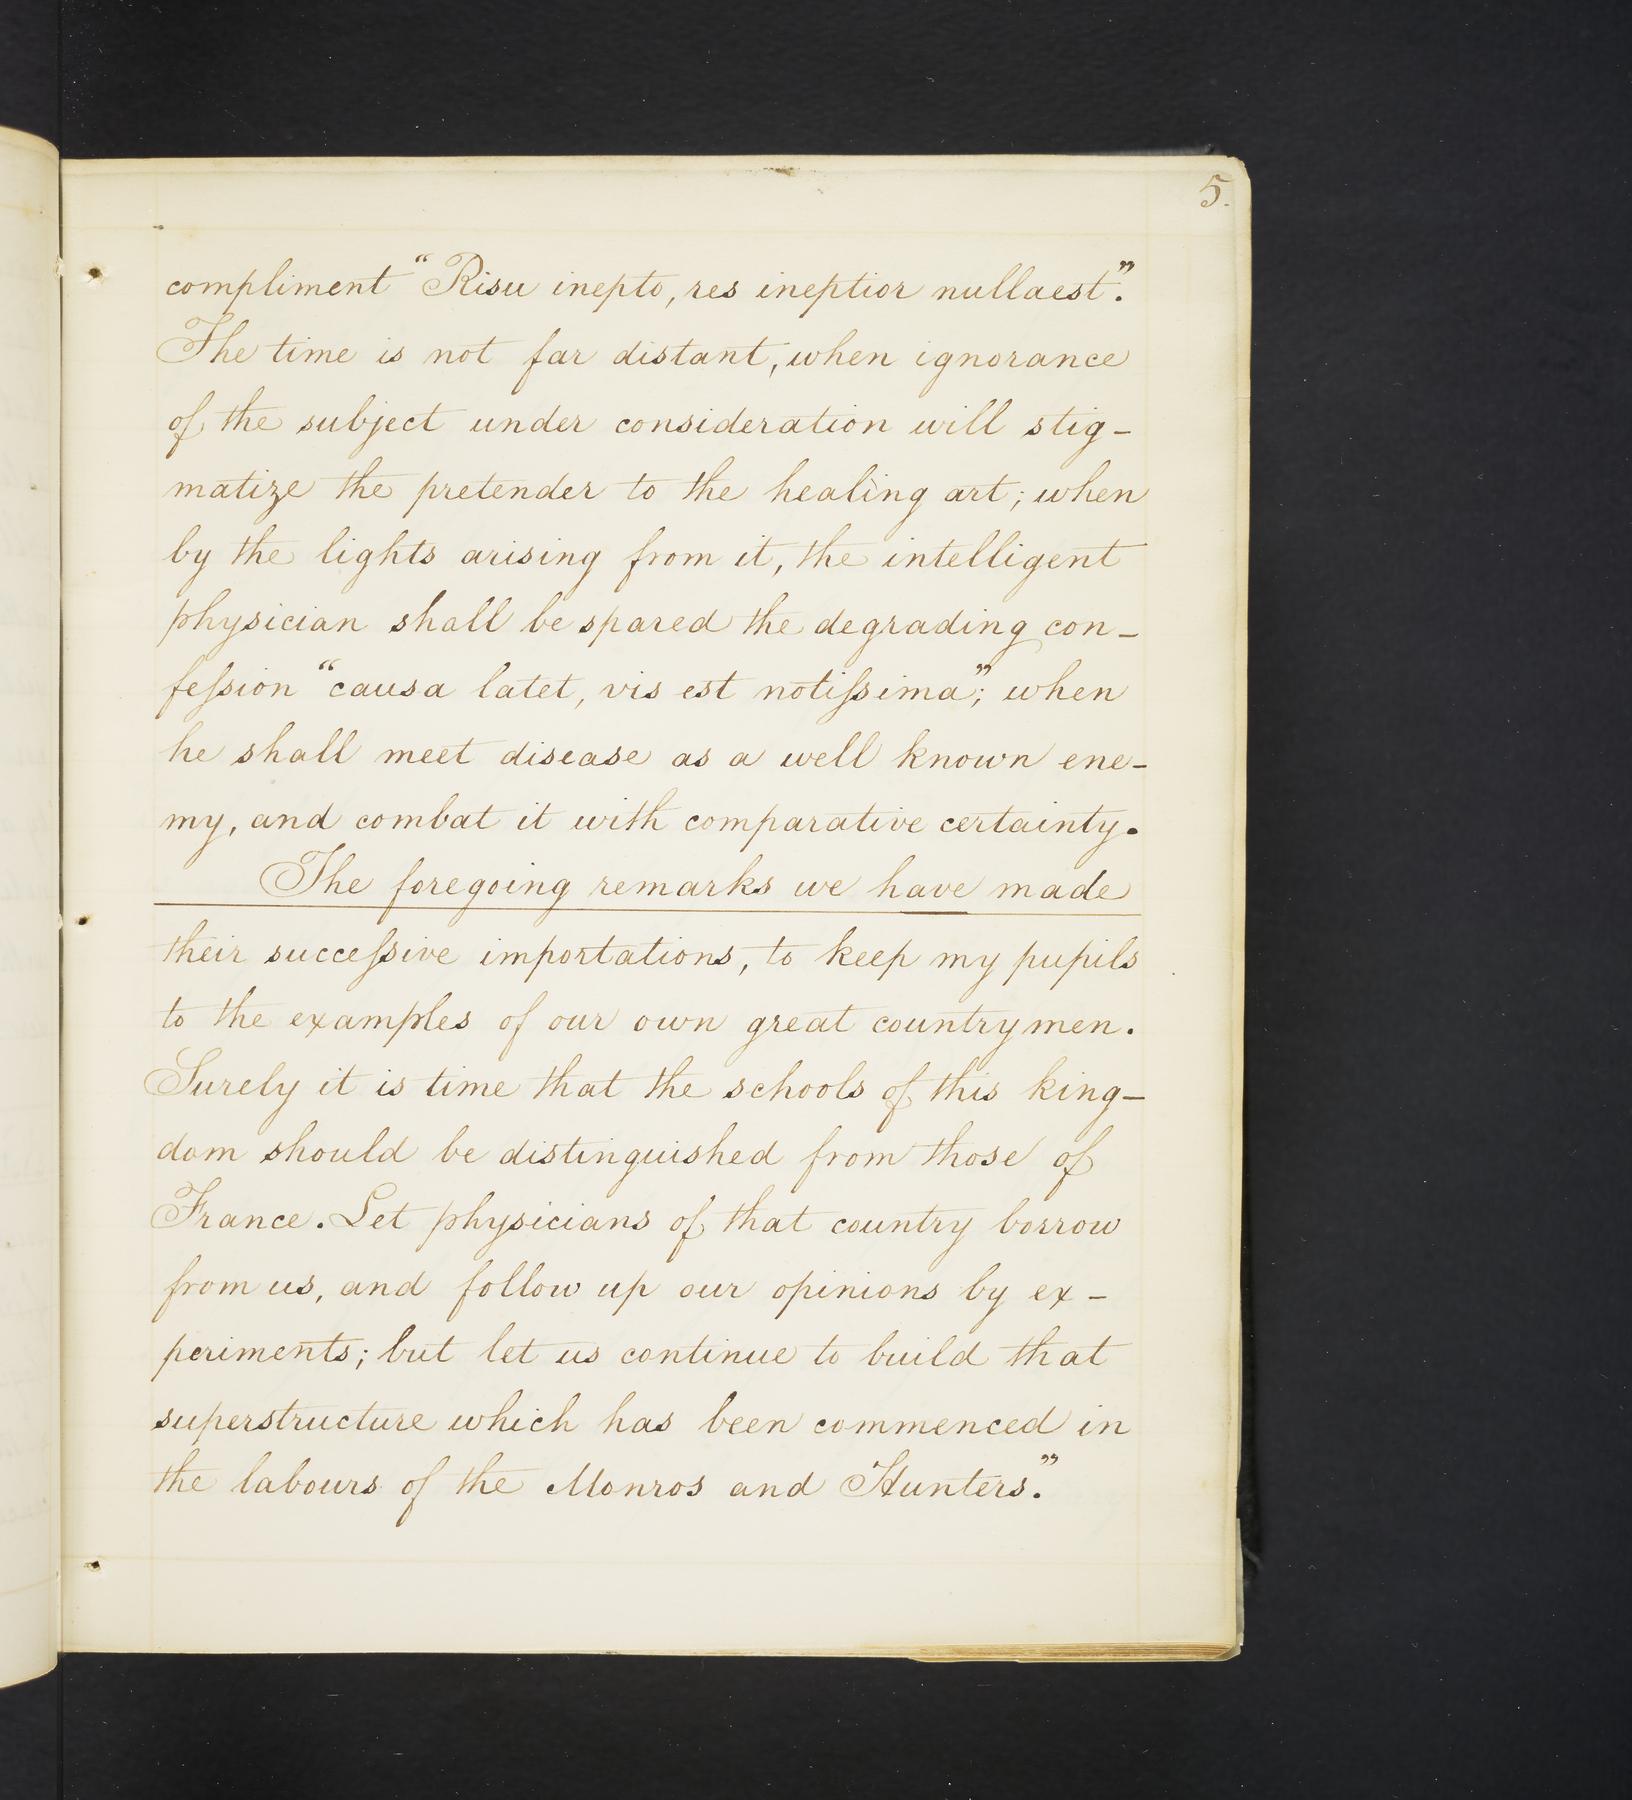 5.
compliment “Risu inepto, res ineptior nullaest”.
The time is not far distant, when ignorance
of the subject under consideration will stig-
matize the pretender to the healing art; when
by the lights arising from it, the intelligent
physician shall be spared the degrading con-
feſsion “causa latet, vis est notiſsima”; when
he shall meet disease as a well known ene-
my, and combat it with comparative certainty.
The foregoing remarks we have made
their succeſsive importations, to keep my pupils
to the examples of our own great countrymen.
Surely it is time that the schools of this king-
dom should be distinguished from those of
France. Let physicians of that country borrow
from us, and follow up our opinions by ex-
periments; but let us continue to build that
superstructure which has been commenced in
the labours of the Monros and Hunters.”